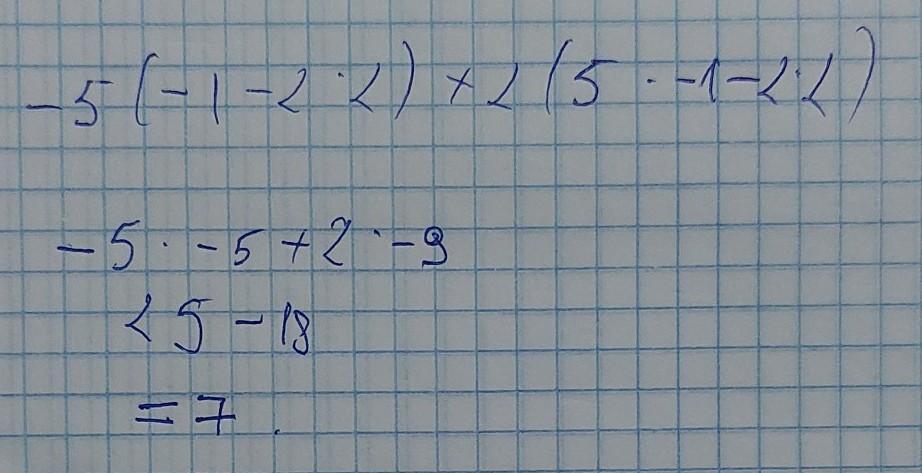 -5(-1-2·2)+2(5·-1-2·2)
-5·-5+2·-9
25-18
=7.